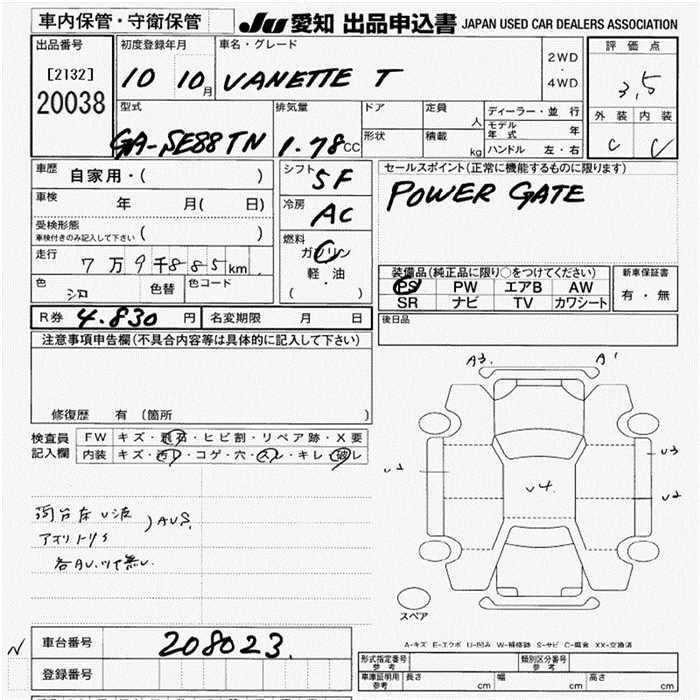 車内保管・守衛保管 JU 愛知 出品申込書 JAPAN USED CAR DEALERS ASSOCIATION
出品番号 初度登録年月 車名・グレード 2WD・4WD 評価点
[2132] 10 10月 VANETTE T 3.5
20038 型式 排気量 ドア 定員 人 ディーラー・並行 外装 内装
GA-SE88TN 1.78cc 形状 積載 kg モデル年式 年 C C
ハンドル 左・右
車歴 自家用・( ) シフト 5F セールスポイント(正常に機能するものに限ります)
車検 年 月( 日) 冷房 AC POWER GATE
受検形態
車検付きのみ記入して下さい ( )
燃料 ガソリン
走行 7万9千885km 軽・油 装備品(純正品に限り○をつけてください) 新車保証書
色 シロ 色替 色コード ( ) PS PW エアB AW 有・無
SR ナビ TV カワシート
R券 4.830円 名変期限 月 日 後日品
注意事項申告欄(不具合内容等は具体的に記入して下さい)
A3. A1
修復歴 有(箇所 )
検査員 FW キズ・飛石・ヒビ割・リペア跡・X要
記入欄 内装 キズ・汚レ・コゲ・穴・スレ・キレ・破レ
U3
U2
U4.
)AUS.
スペア
A-キズ E-エクボ U-凹み W-補修跡 S-サビ C-腐食 XX-交換済
N 車台番号 208023.
登録番号 形式指定番号 参考 類別区分番号 参考
車庫証明用 参考 長さ cm 幅 cm 高さ cm